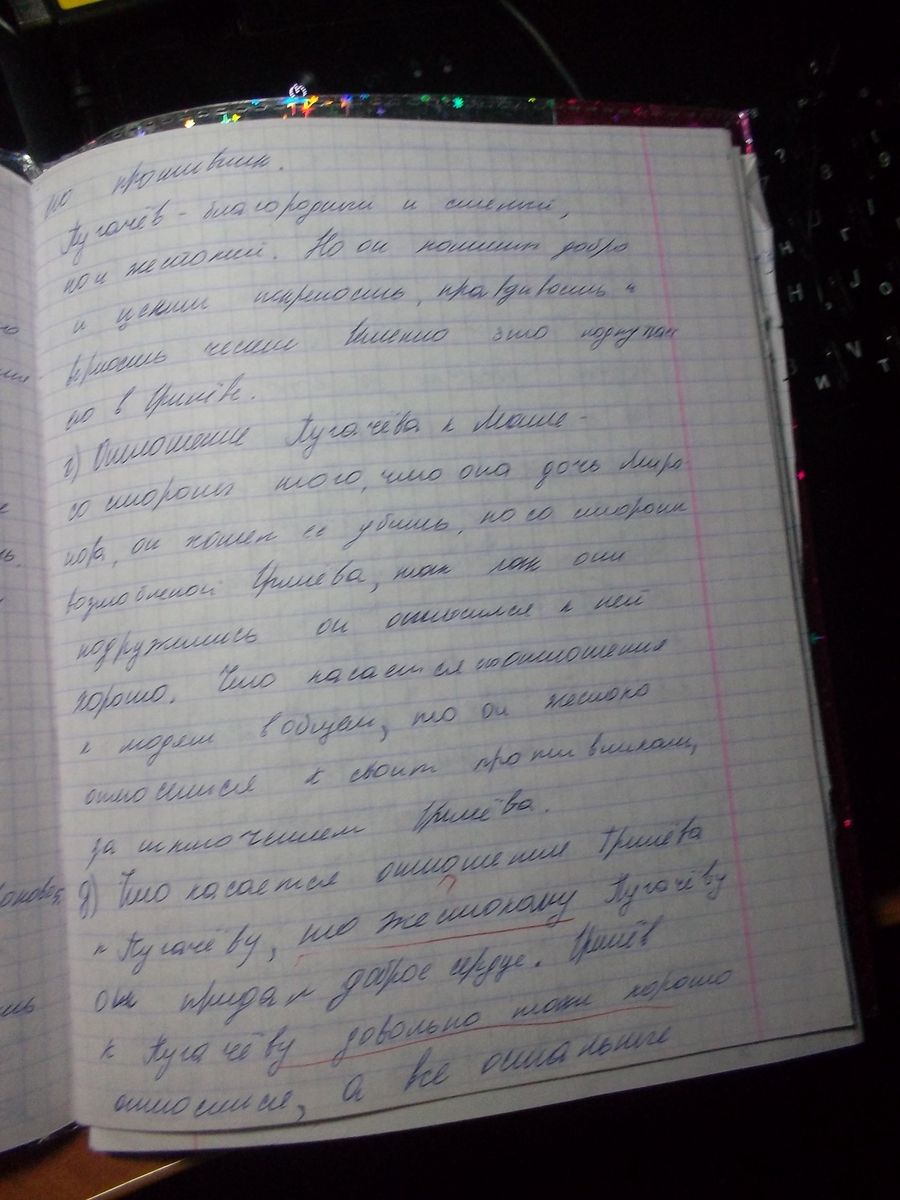 го противник.
Пугачёв - благородный и смелый,
но и жестокий. Но он помнит добро
и ценит искренность, правдивость и
верность чести Именно это подкупало
его в Гринёве.
г) Отношение Пугачёва к Маше -
со стороны того, что она дочь Миро-
нова, он хотел её убить, но со стороны
возлюбленой Гринёва, так как они
подружились он относился к ней
хорошо. Что касается отношения
к людям в общем, то он жестоко
относится к своим противникам,
за исключением Гринёва.
д) Что касается отношения Гринёва
к Пугачёву, то жестокому Пугачёву
он придал доброе сердце. Гринёв
к Пугачёву довольно таки хорошо
относится, а все остальные